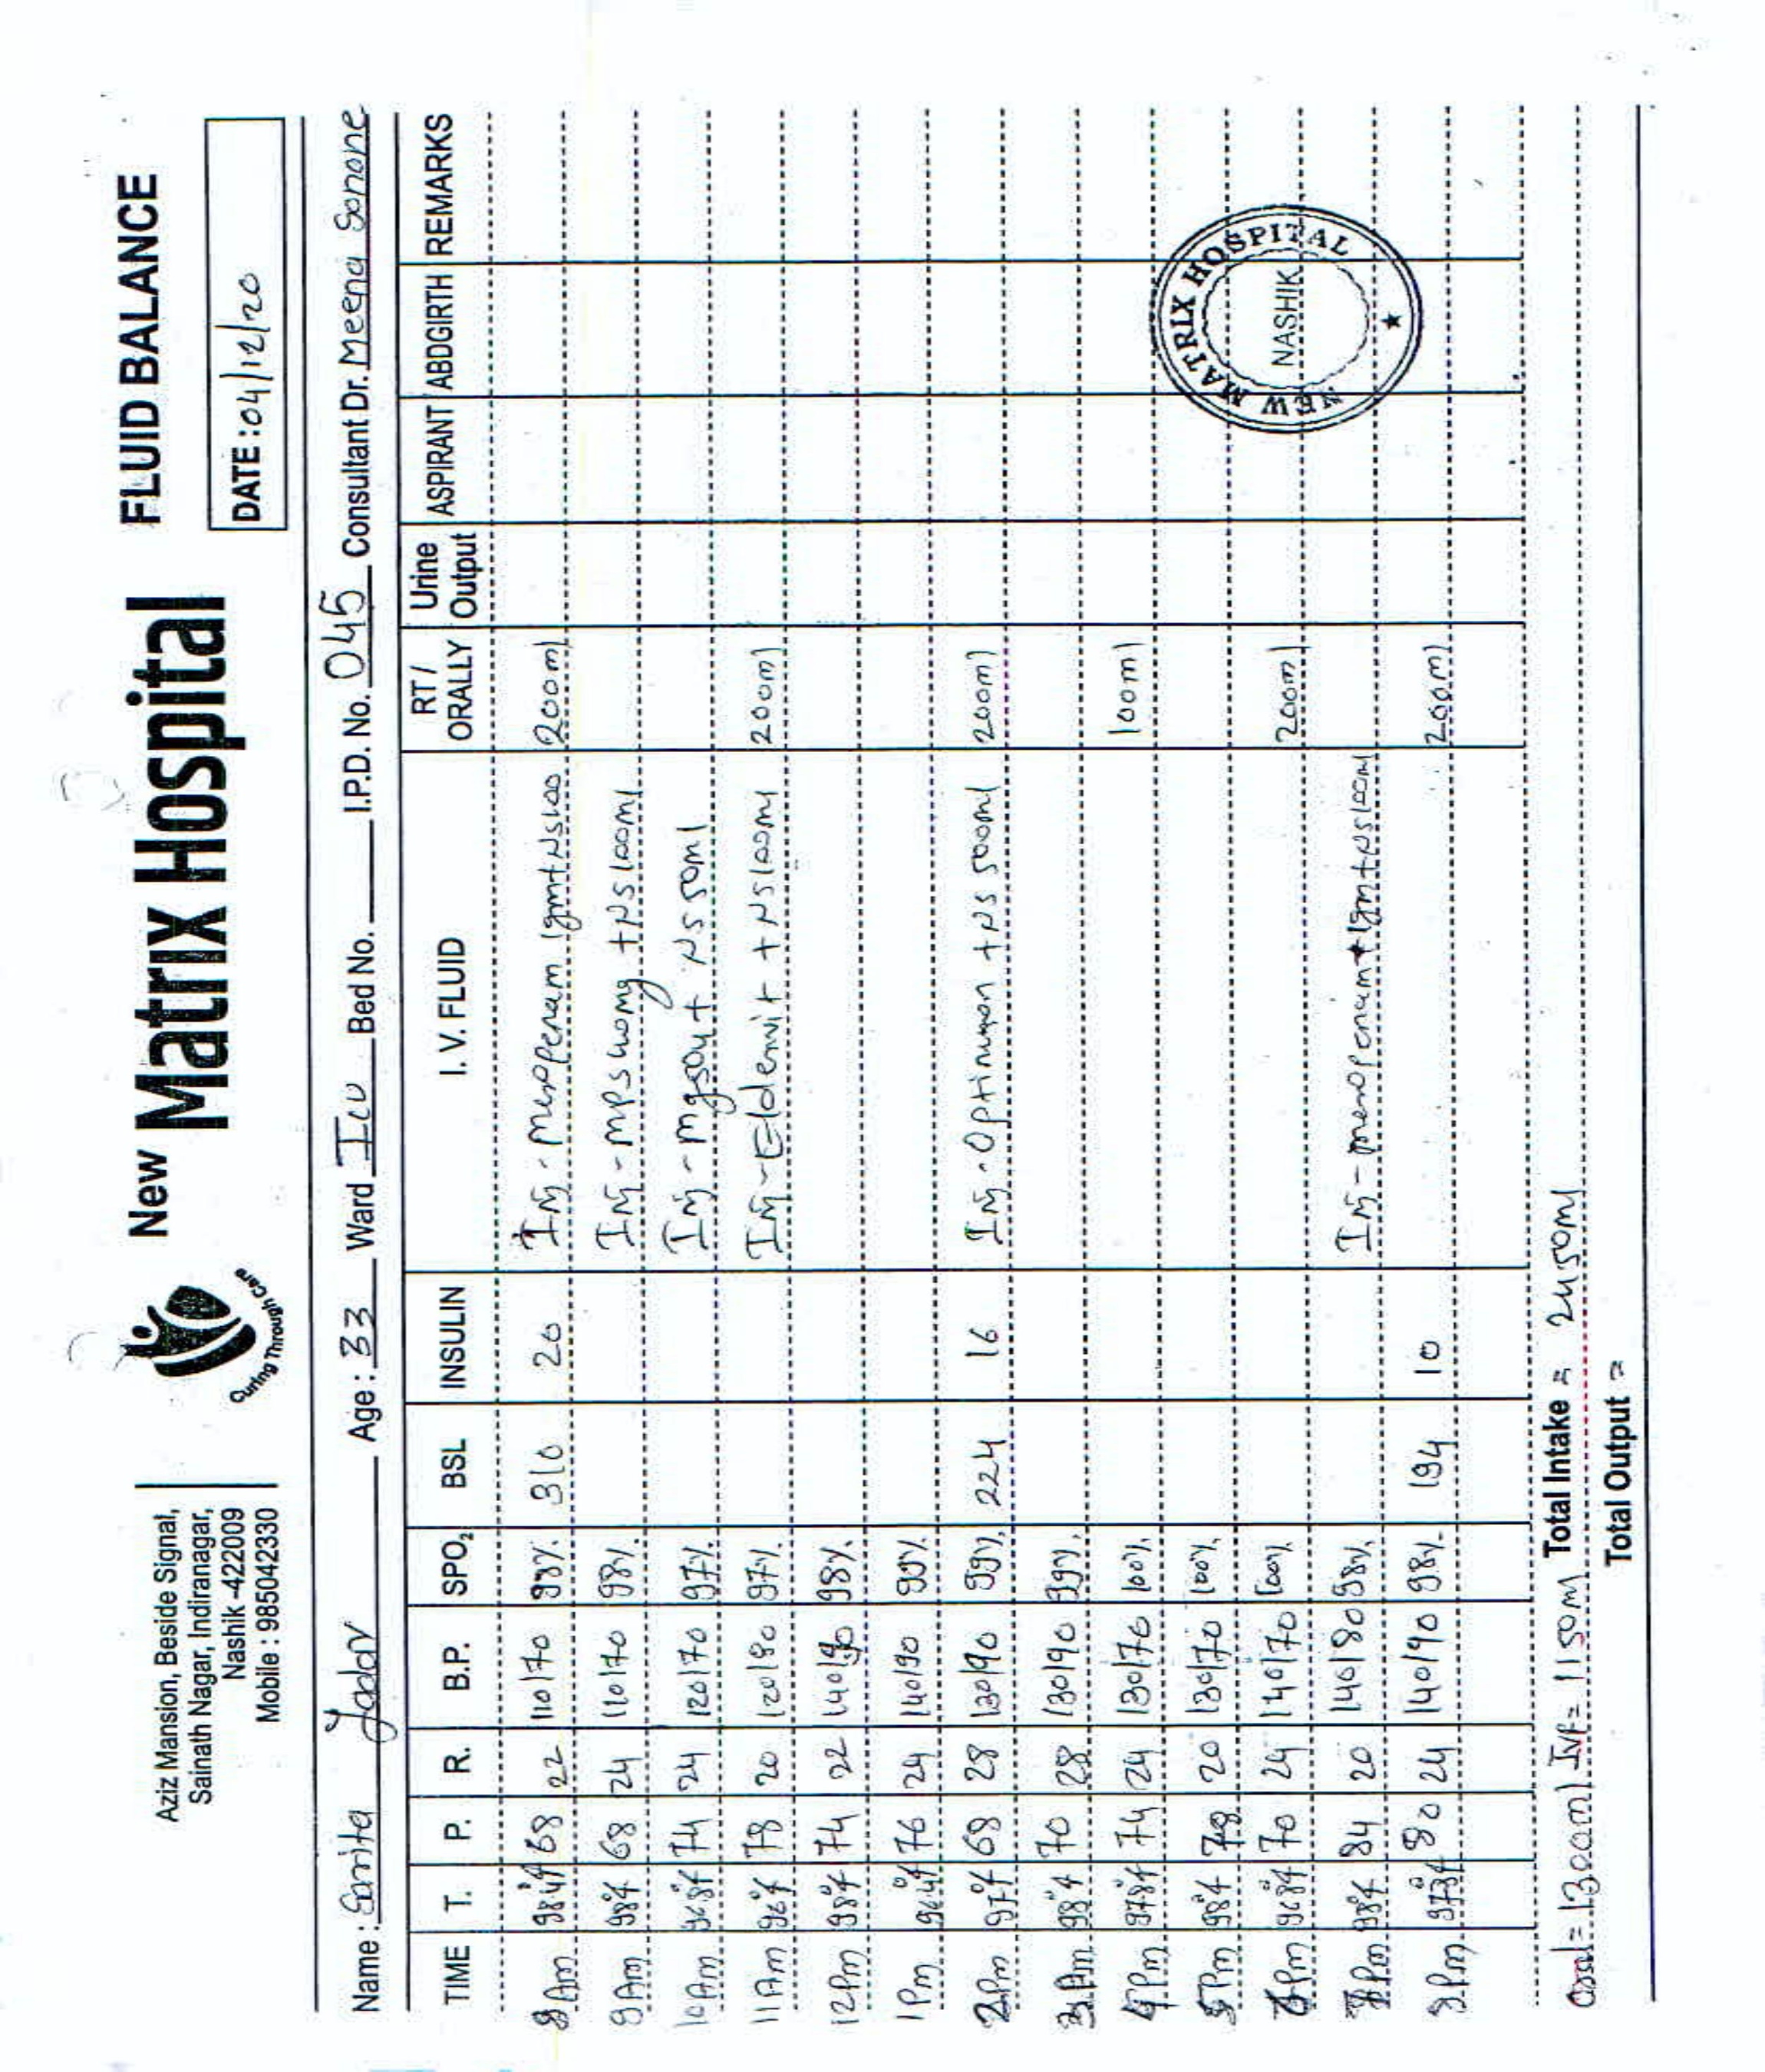 Aziz Mansion, Beside Signal,
Sainath Nagar, Indiranagar,
Nashik -422009
Mobile : 985042330
Curing Through Care
New Matrix Hospital
FLUID BALANCE
DATE : 04/12/20
Name : Sarita Age : 33 Ward Icu Bed No. I.P.D. No. 045 Consultant Dr. Meena Sonone
TIME T. P. R. B.P. SPO₂ BSL INSULIN I. V. FLUID RT / ORALLY Urine Output ASPIRANT ABDGIRTH REMARKS
8 Am 98.4°f 68 22 110/70 98% 310 20 Inj - Meropenam 1gm+NS100 200ml
9 Am 98°f 68 24 110/70 98% Inj - mps 40mg +NS100ml
10 Am 96.8°f 74 24 120/70 97% Inj - mgso4+ NS 50ml
11 Am 96°f 78 20 120/80 97% Inj - Eldervit + NS100ml 200ml
12 Pm 98°f 74 22 140/90 98%
1 Pm 96.4°f 76 24 140/90 99%
2 Pm 97°f 68 28 130/90 99% 224 16 Inj - Optinuron +NS 500ml 200ml
98°f 70 28 130/90 99%
4 Pm 97.8°f 74 24 130/70 100% 100ml
5 Pm 98°f 78 20 130/70 100%
Pm 96.8°f 70 24 140/70 100% 200ml
Pm 98°f 84 20 140/80 98% Inj - meropenam 1gm+NS100ml
Pm 97.3°f 80 24 140/90 98% 194 10 200ml
Oral = 1300ml IVF = 1150ml Total Intake = 2450ml
Total Output =
NEW MATRIX HOSPITAL
NASHIK